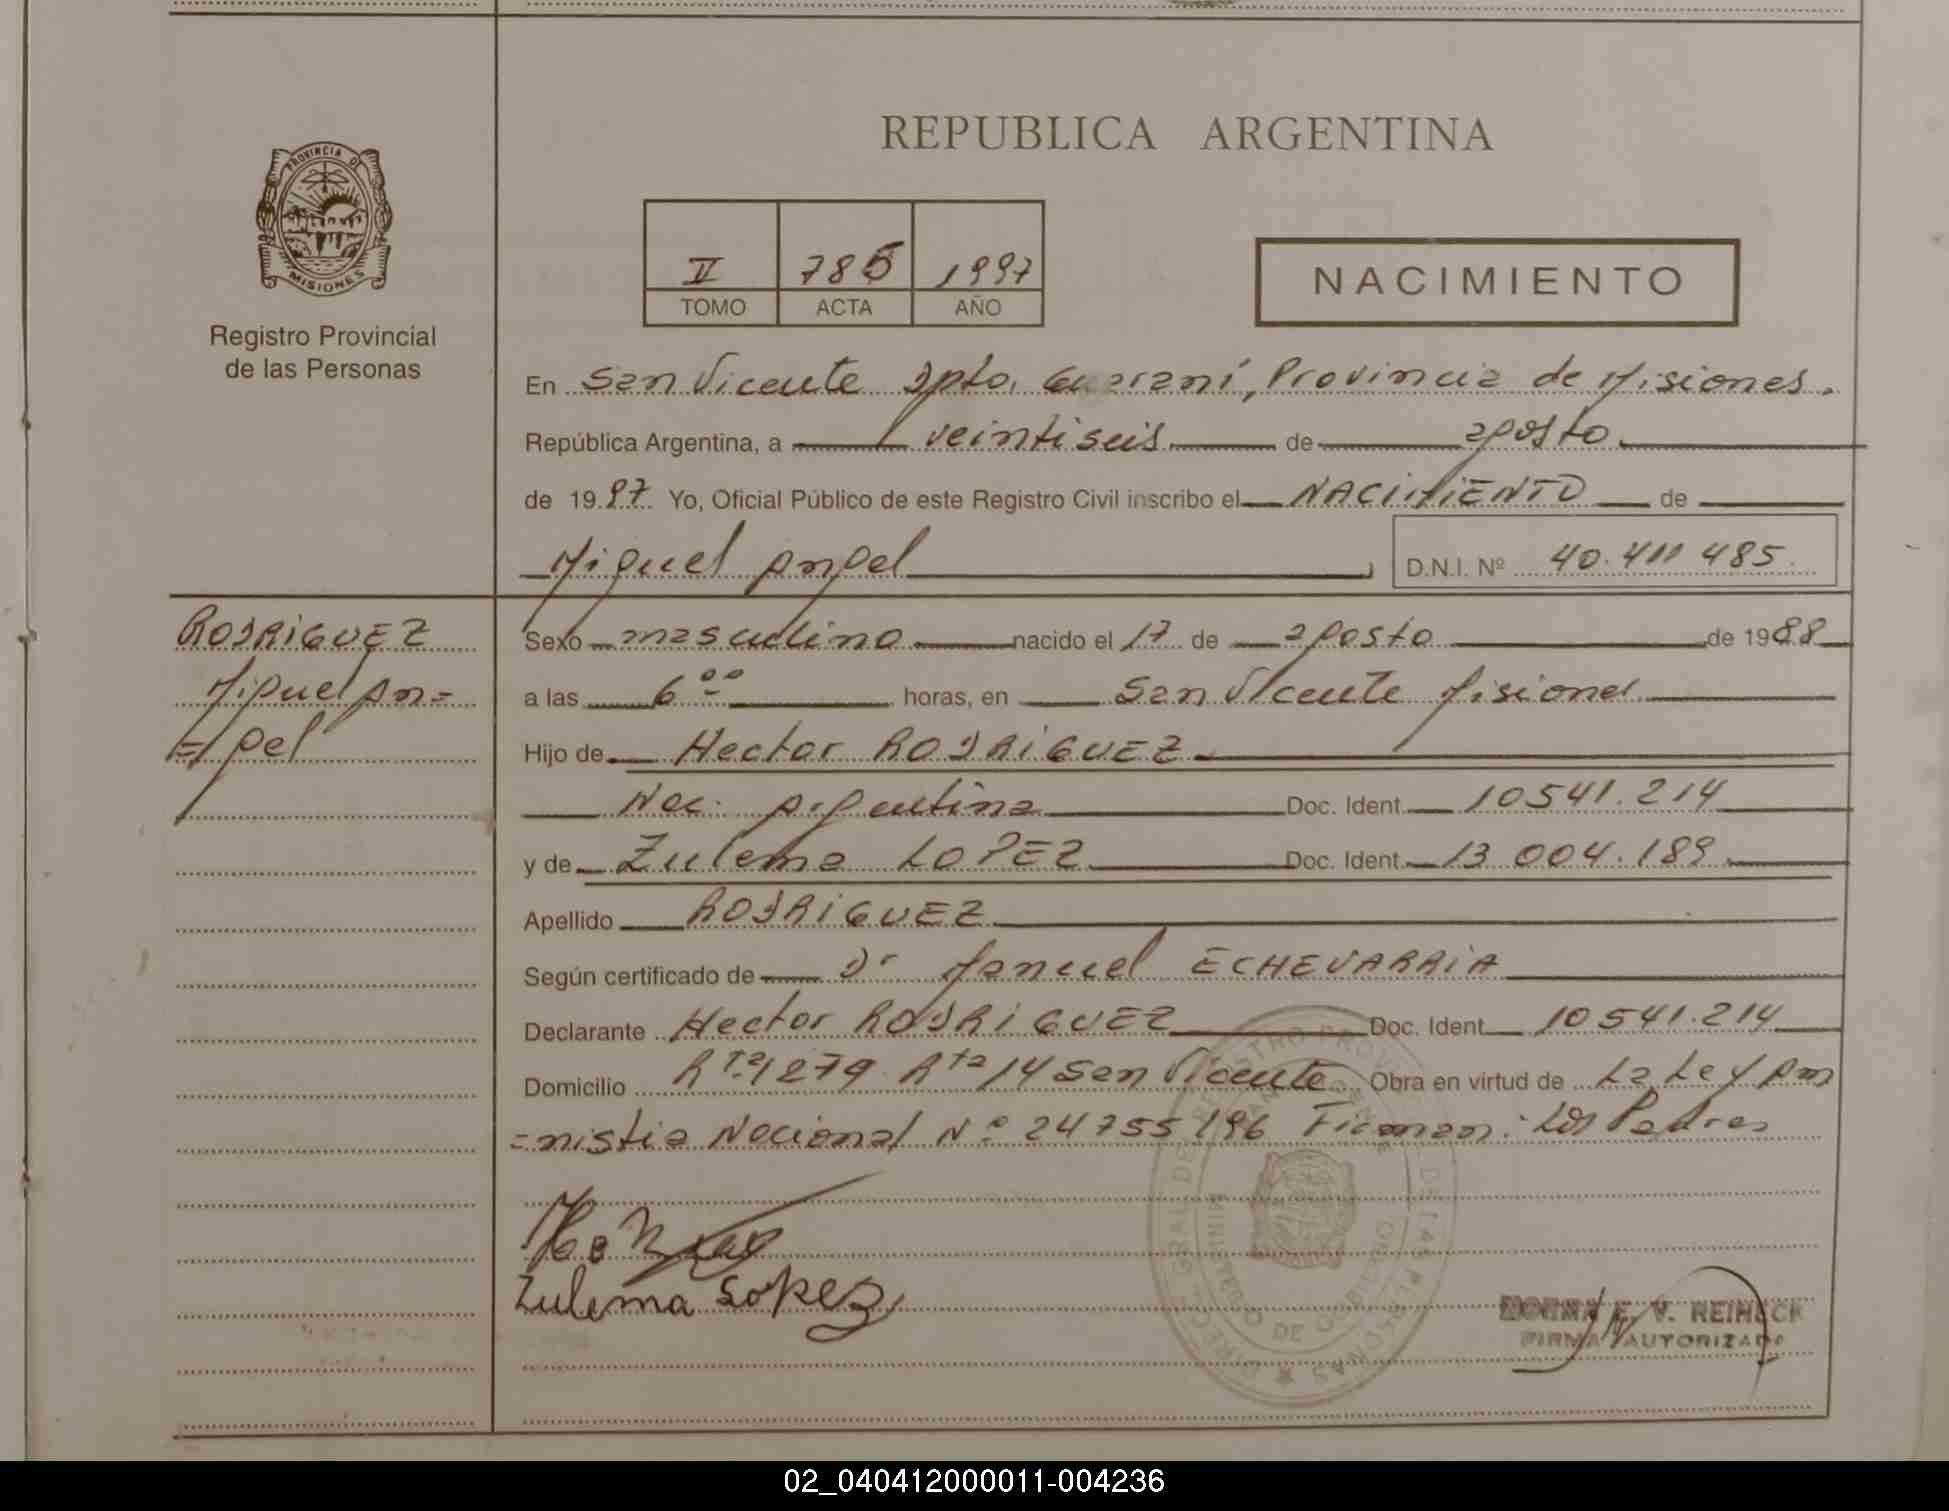 REPUBLICA ARGENTINA
PROVINCIA DE
MISIONES
Registro Provincial
de las Personas
II 785 1997
TOMO ACTA AÑO
NACIMIENTO
En San Vicente Dpto. Guaraní, Provincia de Misiones.
República Argentina, a veintiseis de agosto
de 1997. Yo, Oficial Público de este Registro Civil inscribo el NACIMIENTO de
Miguel Angel D.N.I. Nº 40.411 485.
RODRIGUEZ
Miguel An=
=gel
Sexo masculino nacido el 17 de agosto de 1988
a las 6⁰⁰ horas, en San Vicente Misiones
Hijo de Hector RODRIGUEZ
Nac. Argentina Doc. Ident. 10541.214
y de Zulema LOPEZ Doc. Ident. 13 004.189
Apellido RODRIGUEZ
Según certificado de Dr Manuel ECHEVARRIA
Declarante Hector RODRIGUEZ Doc. Ident. 10541.214
Domicilio Rta 14 San Vicente Obra en virtud de La Ley Am
=nistia Nacional Nº 24755/96 Firman: Los Padres
Zulema Lopez
E. V. REINECK
FIRMA AUTORIZADA
REGISTRO PROVINCIAL DE LAS PERSONAS
MINISTERIO DE GOBIERNO
02_040412000011-004236